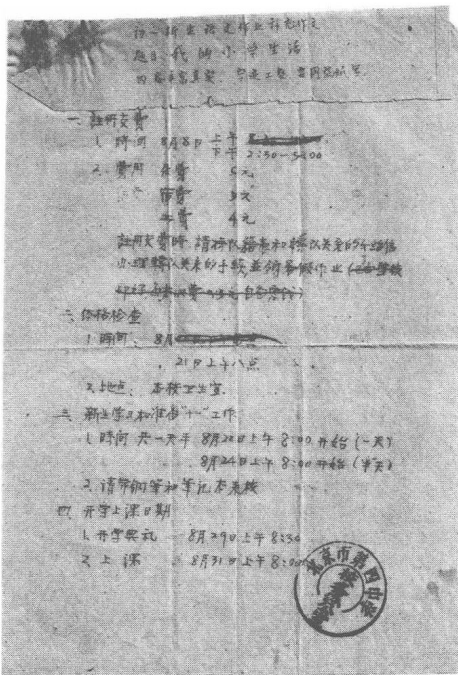 初一新生语文作业补充作文
题目 我的小学生活
内容要真实 字迹工整 要用稿纸写.
一. 註册交费
1. 时间 8月8日 上午
下午 2:30—5:00
2. 费用 学费 5元
宿费 3元
杂费 4元
註册交费时 請将户籍表和
办理转 关系的手续 並领暑假作业
二. 体格检查
1 时间: 8月
21日上午八点
2. 地点: 本校卫生室.
三. 新生学习和准备"十一"工作
1. 时间 共一天半 8月22日上午 8:00 开始 (一天)
8月24日上午 8:00 开始 (半天)
2. 请带钢筆和筆记本来校
四. 开学上课日期
1. 开学典礼 8月29日上午 8:30
2. 上 课 8月31日上午 8:00
北京市第四中学